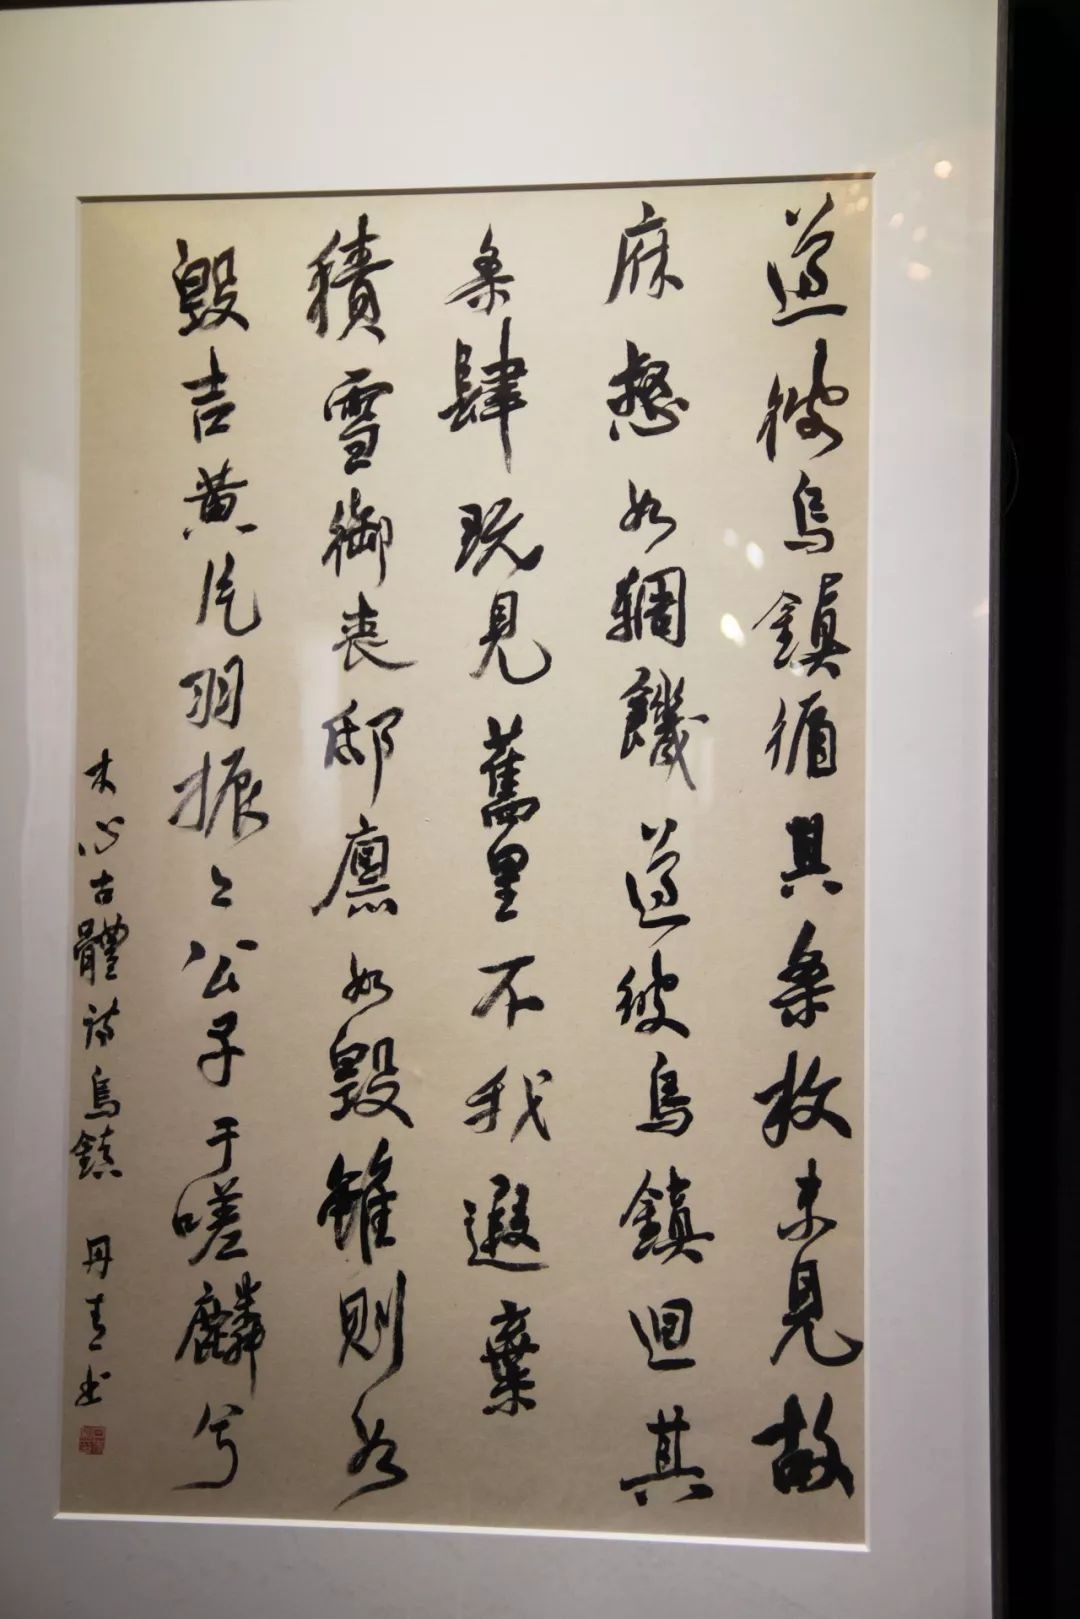 遵彼烏鎮循其条枚未見故
麻惄如輖饑遵彼烏鎮迴其
条肄既見舊里不我遐棄
積雪御喪邸廪如毀雖則如
毀吉黄片羽振〻公子于嗟麟兮
木心古體詩烏鎮 丹青书